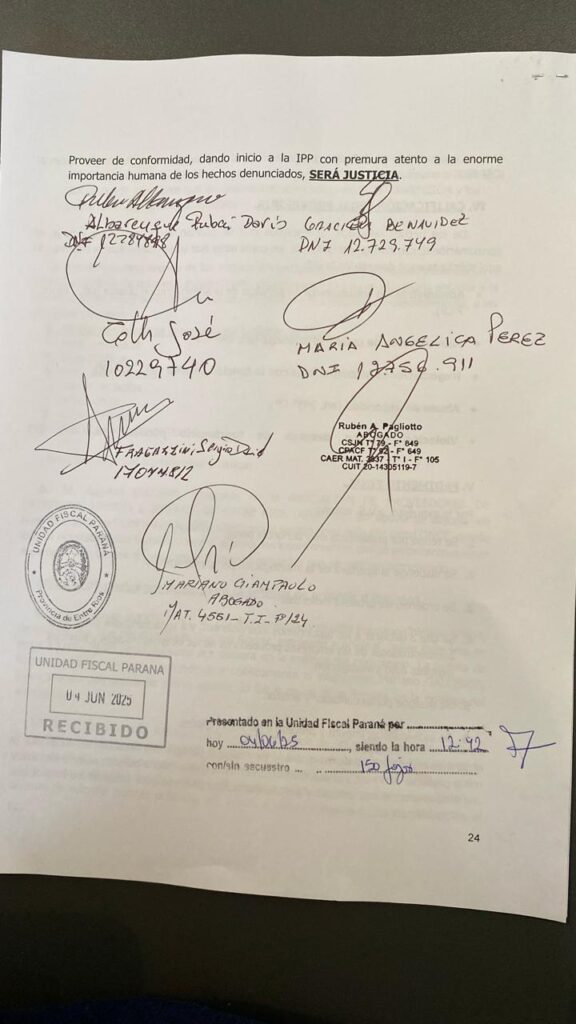 Proveer de conformidad, dando inicio a la IPP con premura atento a la enorme
importancia humana de los hechos denunciados, SERÁ JUSTICIA.
Albarenque Rubén Darío
DNI
GRACIELA BENAVIDEZ
DNI 12.729.749
José
10229740
MARIA ANGELICA PEREZ
DNI 12.756.911
Sergio David
Rubén A. Pagliotto
ABOGADO
CSJN Tº 79 - Fº 649
CPACF Tº 82 - Fº 649
CAER MAT. 3937 - Tº I - Fº 105
CUIT 20-14305119-7
MARIANO GIAMPAULO
ABOGADO
MAT. 4561 - T.I - Fº 124
UNIDAD FISCAL PARANÁ
Provincia de Entre Ríos
UNIDAD FISCAL PARANA
04 JUN 2025
RECIBIDO
Presentado en la Unidad Fiscal Paraná por
hoy 04/06/25, siendo la hora 12:42
con/sin secuestro 150 fojas
24